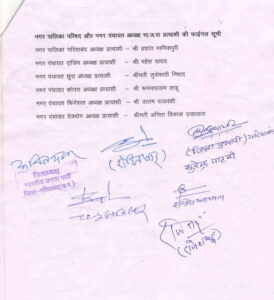 नगर पालिका परिषद और नगर पंचायत अध्यक्ष भा.ज.पा प्रत्याशी की फाईनल सूची
नगर पालिका गरियाबंद अध्यक्ष प्रत्याशी – श्री प्रशांत मानिकपुरी
नगर पंचायत राजिम अध्यक्ष प्रत्याशी – श्री महेश यादव
नगर पंचायत छुरा अध्यक्ष प्रत्याशी – श्रीमती लुकेश्वरी निषाद
नगर पंचायत कोपरा अध्यक्ष प्रत्याशी – श्री रूपनारायण साहू
नगर पंचायत फिंगेश्वर अध्यक्ष प्रत्याशी – श्री उत्तम राजवंशी
नगर पंचायत देवभोग अध्यक्ष प्रत्याशी – श्रीमती अनिता विकास उपाध्याय
जिलाध्यक्ष
भारतीय जनता पार्टी
जिला-गरियाबंद(छ.ग.)
(जिला प्रभारी)